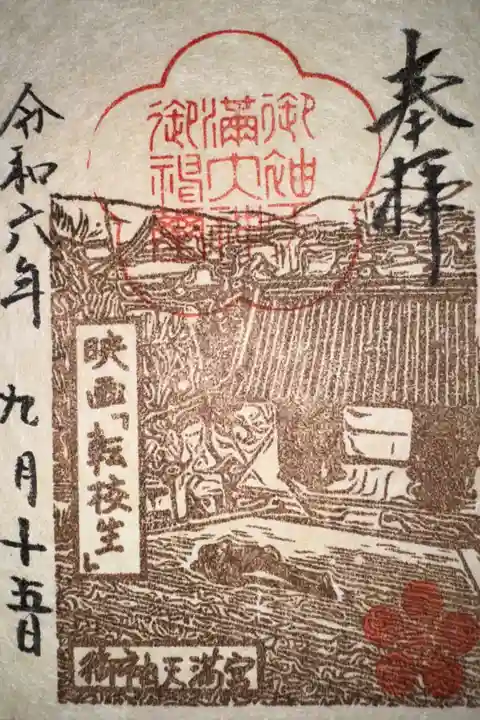 奉拝
御袖天
満大神
御神璽
映画「転校生」
御袖天満宮
令和六年 九月十五日